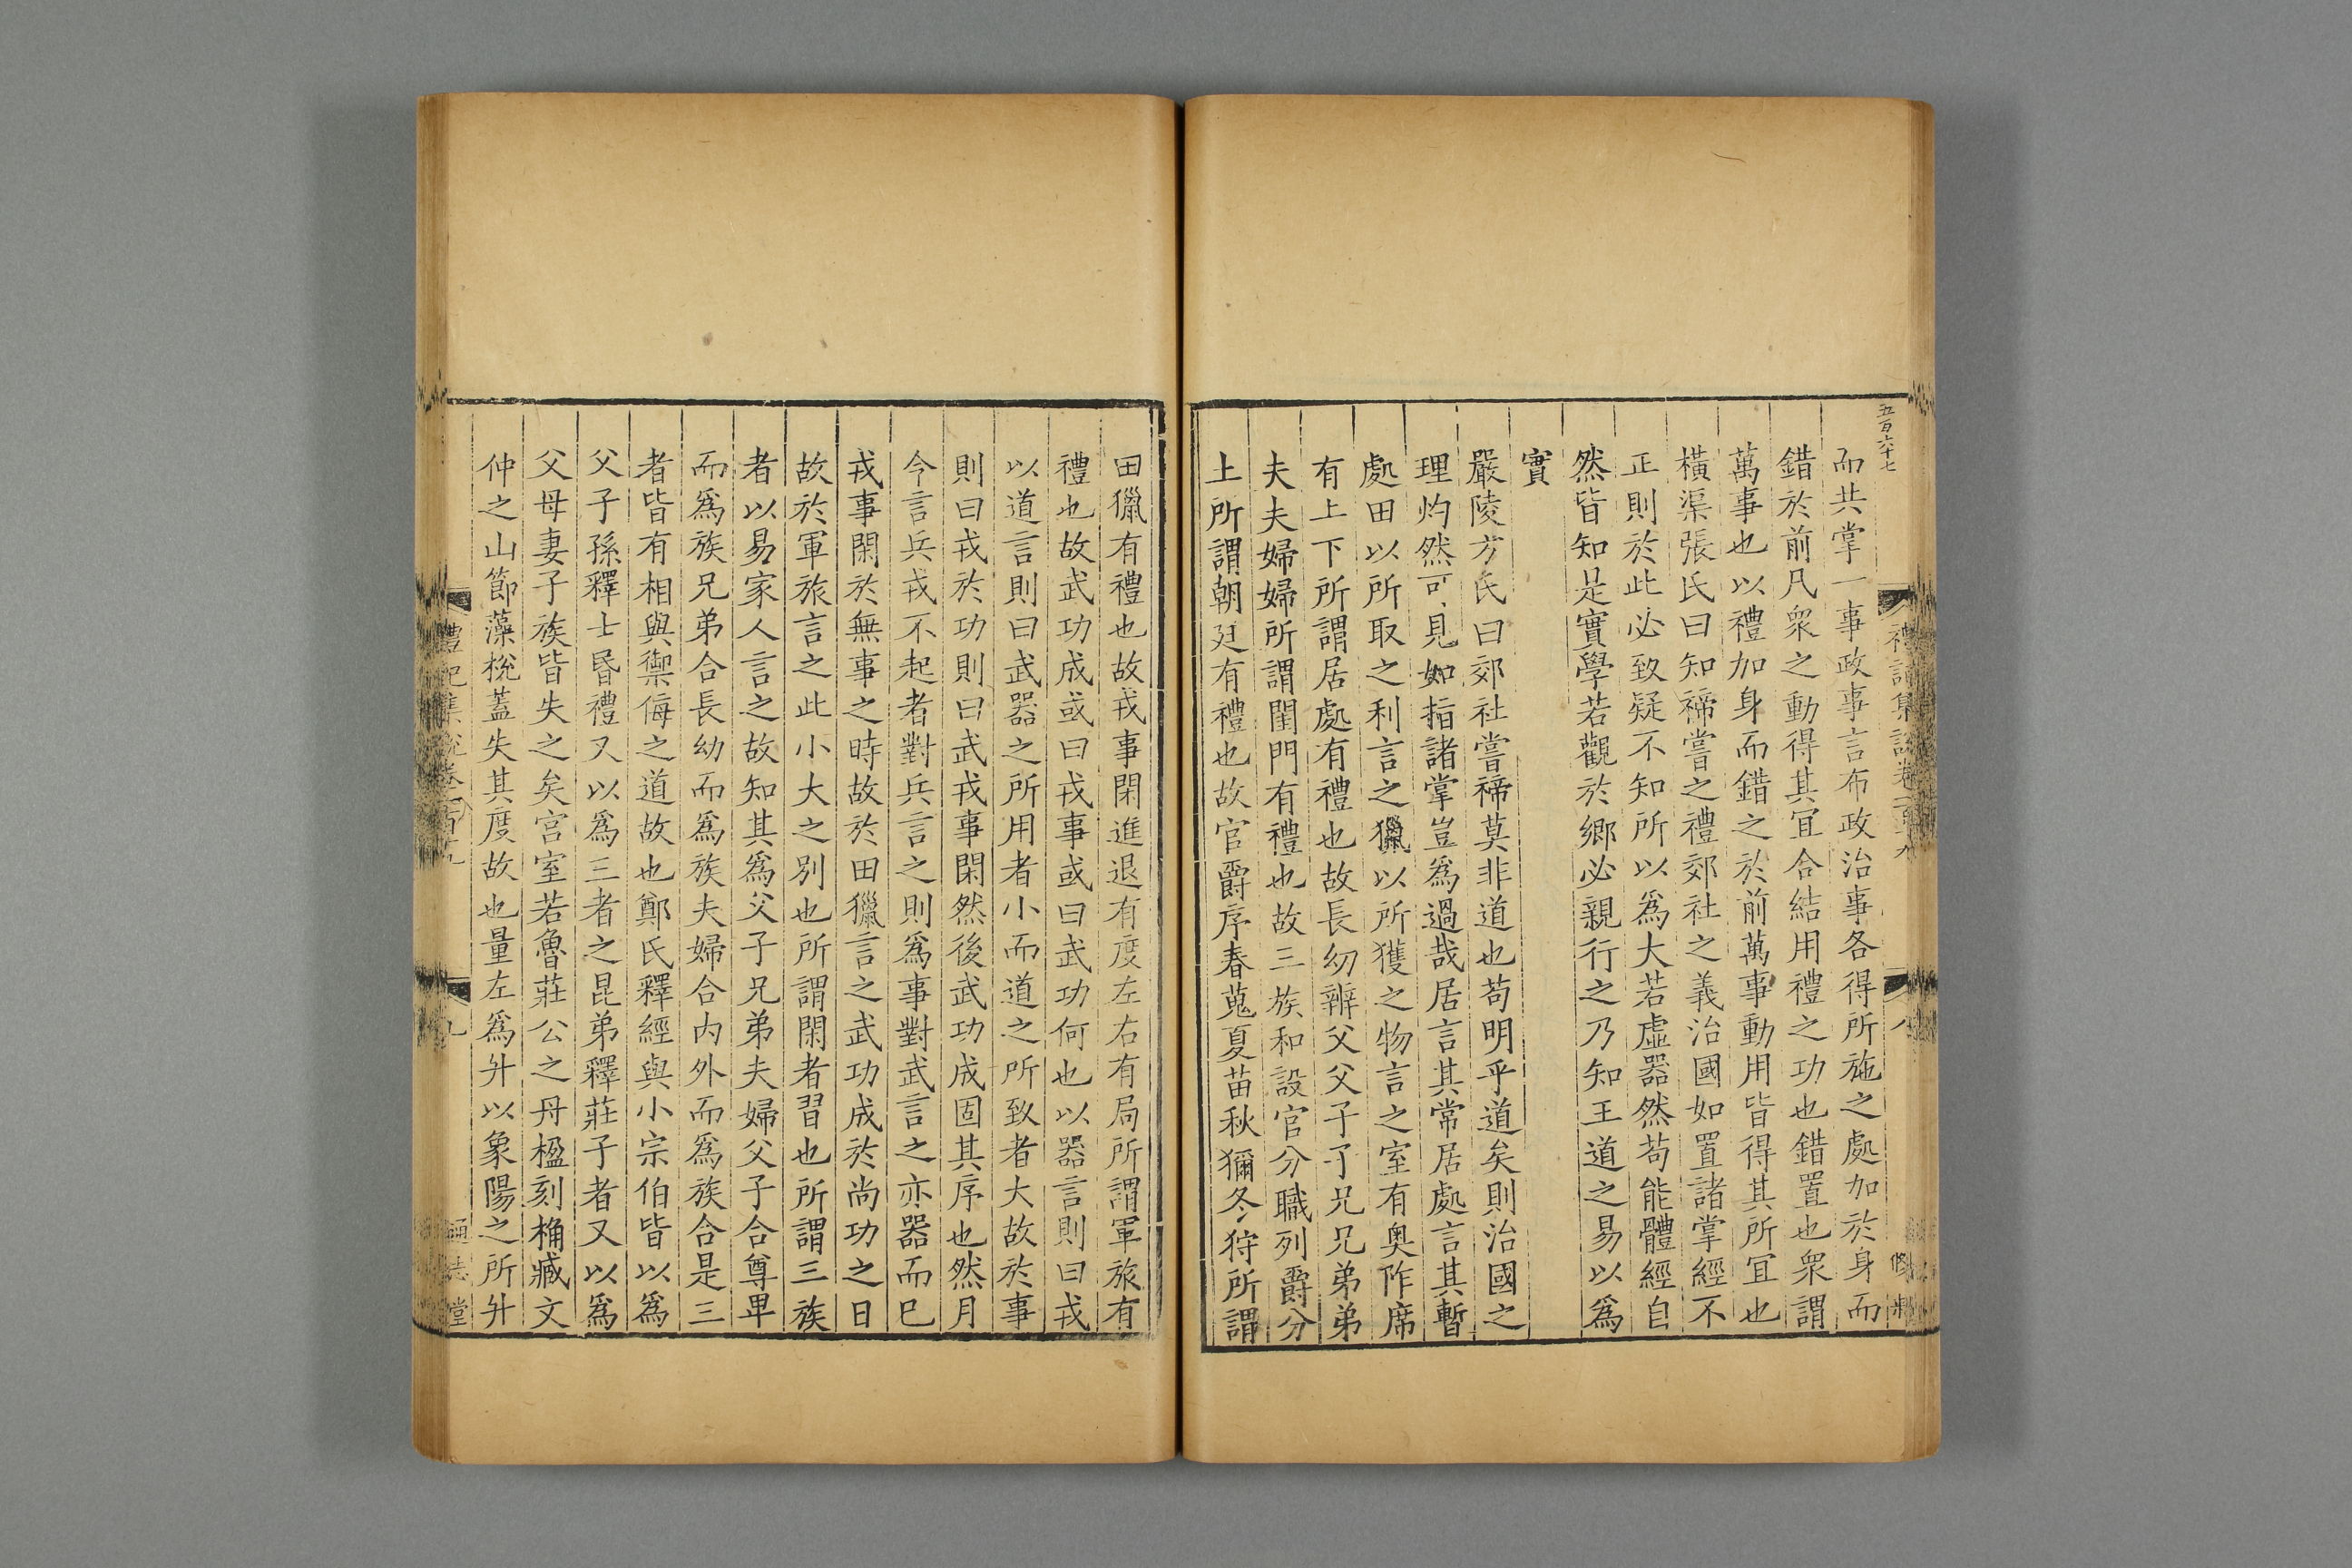 五百六十七
而共掌一事政事言布政治事各得所施之處加於身而
錯於前凡衆之動得其宜合結用禮之功也錯置也衆謂
萬事也以禮加身而錯之於前萬事動用皆得其所宜也
橫渠張氏曰知禘嘗之禮郊社之義治國如置諸掌經不
正則於此必致疑不知所以為大若虛器然苟能體經自
然皆知是實學若觀於鄉必親行之乃知王道之易以為
實
嚴陵方氏曰郊社嘗禘莫非道也苟明乎道矣則治國之
理灼然可見如指諸掌豈為過哉居言其常居處言其暫
處田以所取之利言之獵以所獲之物言之室有奥阼席
有上下所謂居處有禮也故長幼辨父父子子兄兄弟弟
夫夫婦婦所謂閨門有禮也故三族和設官分職列爵分
土所謂朝廷有禮也故官爵序春蒐夏苗秋獮冬狩所謂
禮記集說卷一百十九
八
田獵有禮也故戎事閑進退有度左右有局所謂軍旅有
禮也故武功成或曰戎事或曰武功何也以器言則曰戎
以道言則曰武器之所用者小而道之所致者大故於事
則曰戎於功則曰武戎事閑然後武功成固其序也然月
令言兵戎不起者對兵言之則爲事對武言之亦器而已
戎事閑於無事之時故於田獵言之武功成於尚功之日
故於軍旅言之此小大之別也所謂閑者習也所謂三族
者以易家人言之故知其爲父子兄弟夫婦父子合尊卑
而爲族兄弟合長幼而爲族夫婦合内外而爲族合是三
者皆有相與禦侮之道故也鄭氏釋經與小宗伯皆以爲
父子孫釋士昬禮又以爲三者之昆弟釋莊子者又以爲
父母妻子族皆失之矣宫室若魯莊公之丹楹刻桷臧文
仲之山節藻梲蓋失其度故也量左爲升以象陽之所升
九
通志堂